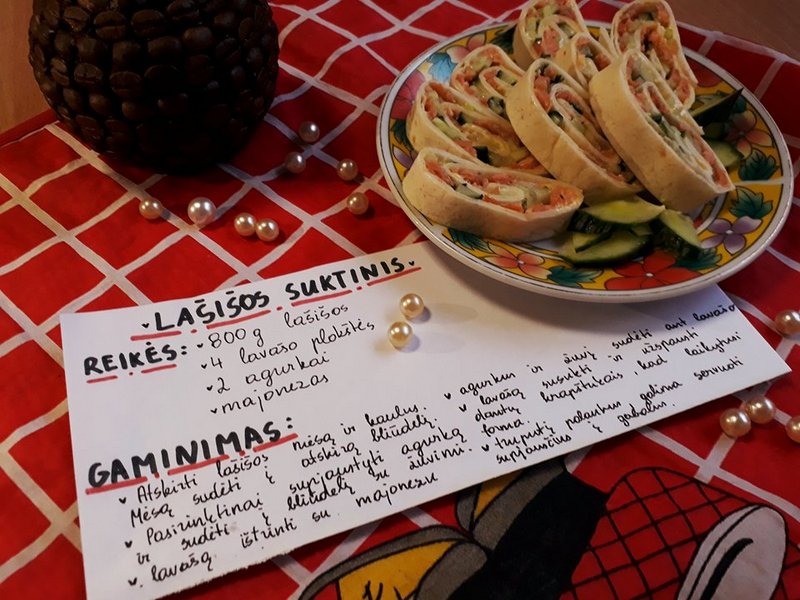 LAŠIŠOS SUKTINIS
REIKĖS:
800 g lašišos
4 lavašo plokštės
2 agurkai
majonezas
GAMINIMAS:
Atskirti lašišos mėsą ir kaulus.
Mėsą sudėti į atskirą bliūdelį.
Pasirinktinai supjaustyti agurką
ir sudėti į bliūdelį su žuvimi.
lavašą ištrinti su majonezu
agurkus ir žuvį sudėti ant lavašo
lavašą susukti ir užspausti
dantų krapštukais, kad laikytųsi
forma.
truputį palaukus galima servuoti
supjausčius į gabalus.